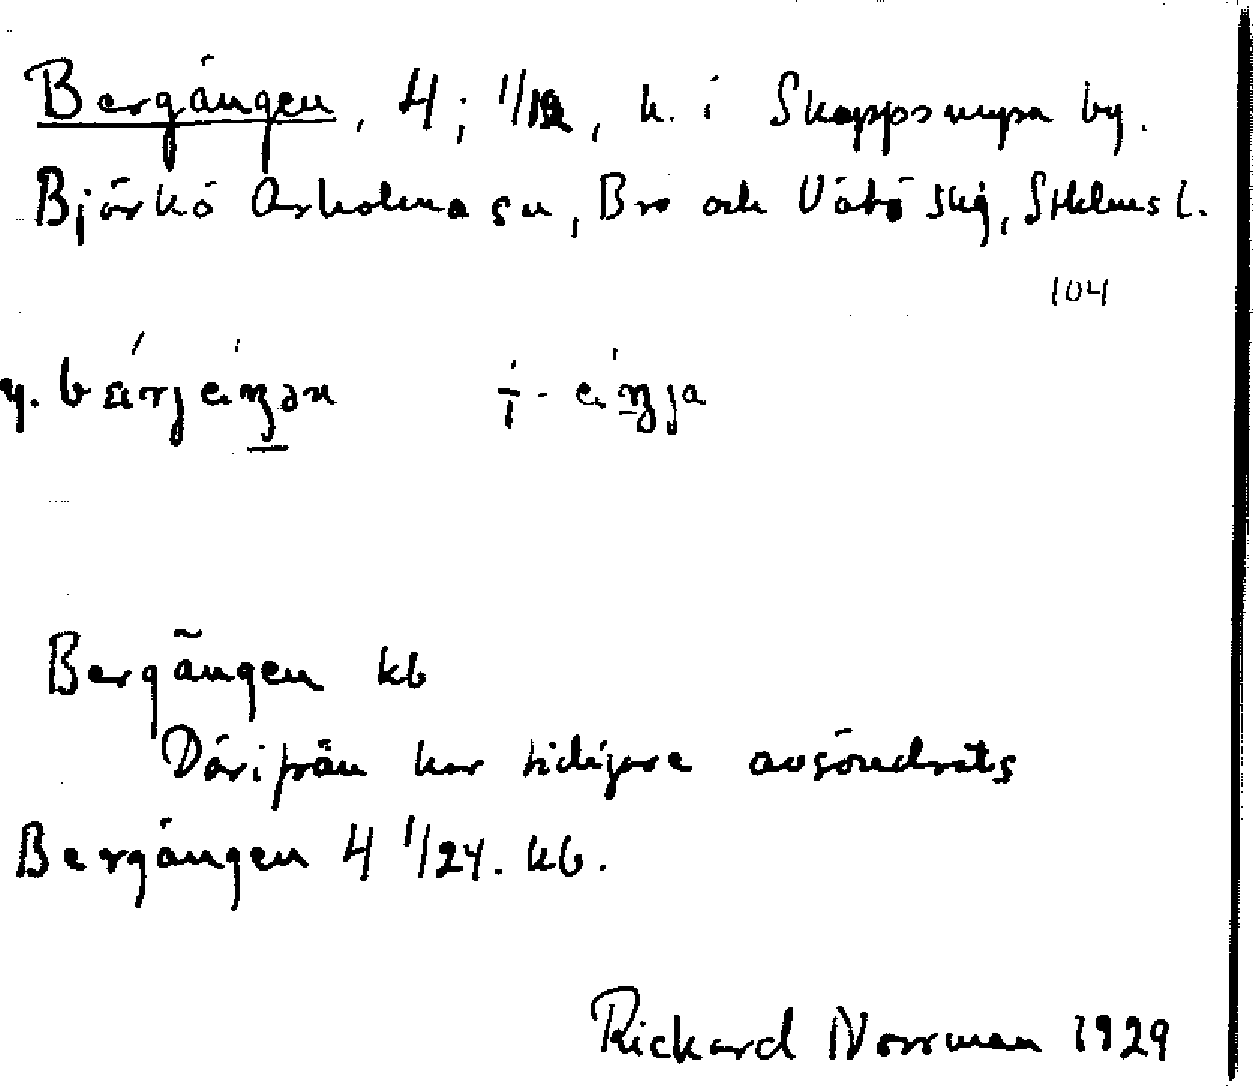 Bergängen, 4; 1/12, h. i Skeppsmyra by.
Björkö Arholma sn, Bro och Vätö skg, Sthlms l.
104
Bergängen kb
Därifrån har tidigare avsöndrats
Bergängen 4 1/24. kb.
Rickard Norrman 1929